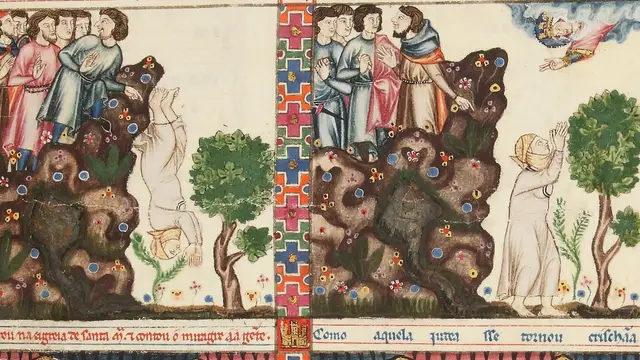 na eigreia de santa mª. ⁊ contou o miragre aa gẽte.
Como aquela iudea sse tornou crischãa